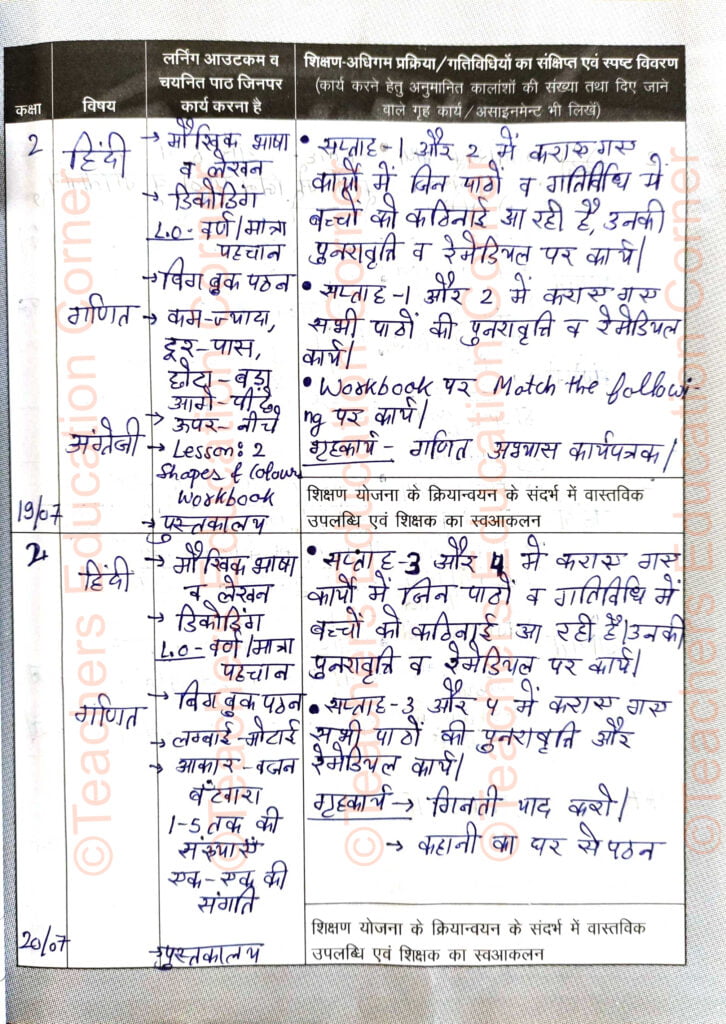 कक्षा
विषय
लर्निंग आउटकम व
चयनित पाठ जिनपर
कार्य करना है
शिक्षण-अधिगम प्रक्रिया/गतिविधियों का संक्षिप्त एवं स्पष्ट विवरण
(कार्य करने हेतु अनुमानित कालांशों की संख्या तथा दिए जाने
वाले गृह कार्य/असाइनमेन्ट भी लिखें)
2
हिंदी
→ मौखिक भाषा
व लेखन
→ डिकोडिंग
L.O- वर्ण/मात्रा
पहचान
→ बिग बुक पठन
• सप्ताह-1 और 2 में कराए गए
कार्यों में जिन पाठों व गतिविधि में
बच्चों को कठिनाई आ रही है, उनकी
पुनरावृत्ति व रेमेडियल पर कार्य।
गणित
→ कम-ज्यादा,
दूर-पास,
छोटा-बड़ा
आगे-पीछे
ऊपर-नीचे
• सप्ताह-1 और 2 में कराए गए
सभी पाठों की पुनरावृत्ति व रेमेडियल
कार्य।
अंग्रेजी
→ Lesson: 2
Shapes & Colours
Workbook
→ पुस्तकालय
• Workbook पर Match the followi
ng पर कार्य।
गृहकार्य - गणित अभ्यास कार्यपत्रक।
19/07
शिक्षण योजना के क्रियान्वयन के संदर्भ में वास्तविक
उपलब्धि एवं शिक्षक का स्वआकलन
2
हिंदी
→ मौखिक भाषा
व लेखन
→ डिकोडिंग
L.O- वर्ण/मात्रा
पहचान
→ बिग बुक पठन
• सप्ताह-3 और 4 में कराए गए
कार्यों में जिन पाठों व गतिविधि में
बच्चों को कठिनाई आ रही है। उनकी
पुनरावृत्ति व रेमेडियल पर कार्य।
गणित
→ लम्बाई-मोटाई
→ आकार-वजन
बंटवारा
1-5 तक की
संख्याएँ
एक-एक की
संगति
→ पुस्तकालय
• सप्ताह-3 और 4 में कराए गए
सभी पाठों की पुनरावृत्ति और
रेमेडियल कार्य।
गृहकार्य → गिनती याद करो।
→ कहानी का घर से पठन
20/07
शिक्षण योजना के क्रियान्वयन के संदर्भ में वास्तविक
उपलब्धि एवं शिक्षक का स्वआकलन
©Teachers Education Corner
©Teachers Education Corner
©Teachers Education Corner
©Teachers Education Corner